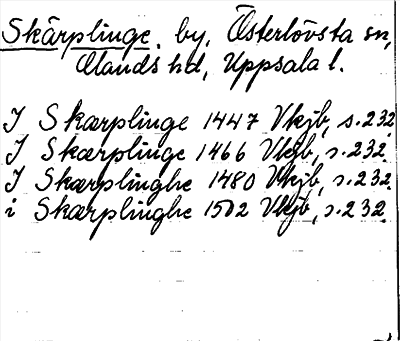 Skärplinge. by, Österlövsta sn,
Olands hd, Uppsala l.
I Skærplinge 1447 Vkjb, s. 232.
I Skærplinge 1466 Vkjb, s. 232.
I Skærplinghe 1480 Vkjb, s. 232.
i Skærplinghe 1502 Vkjb, s. 232.